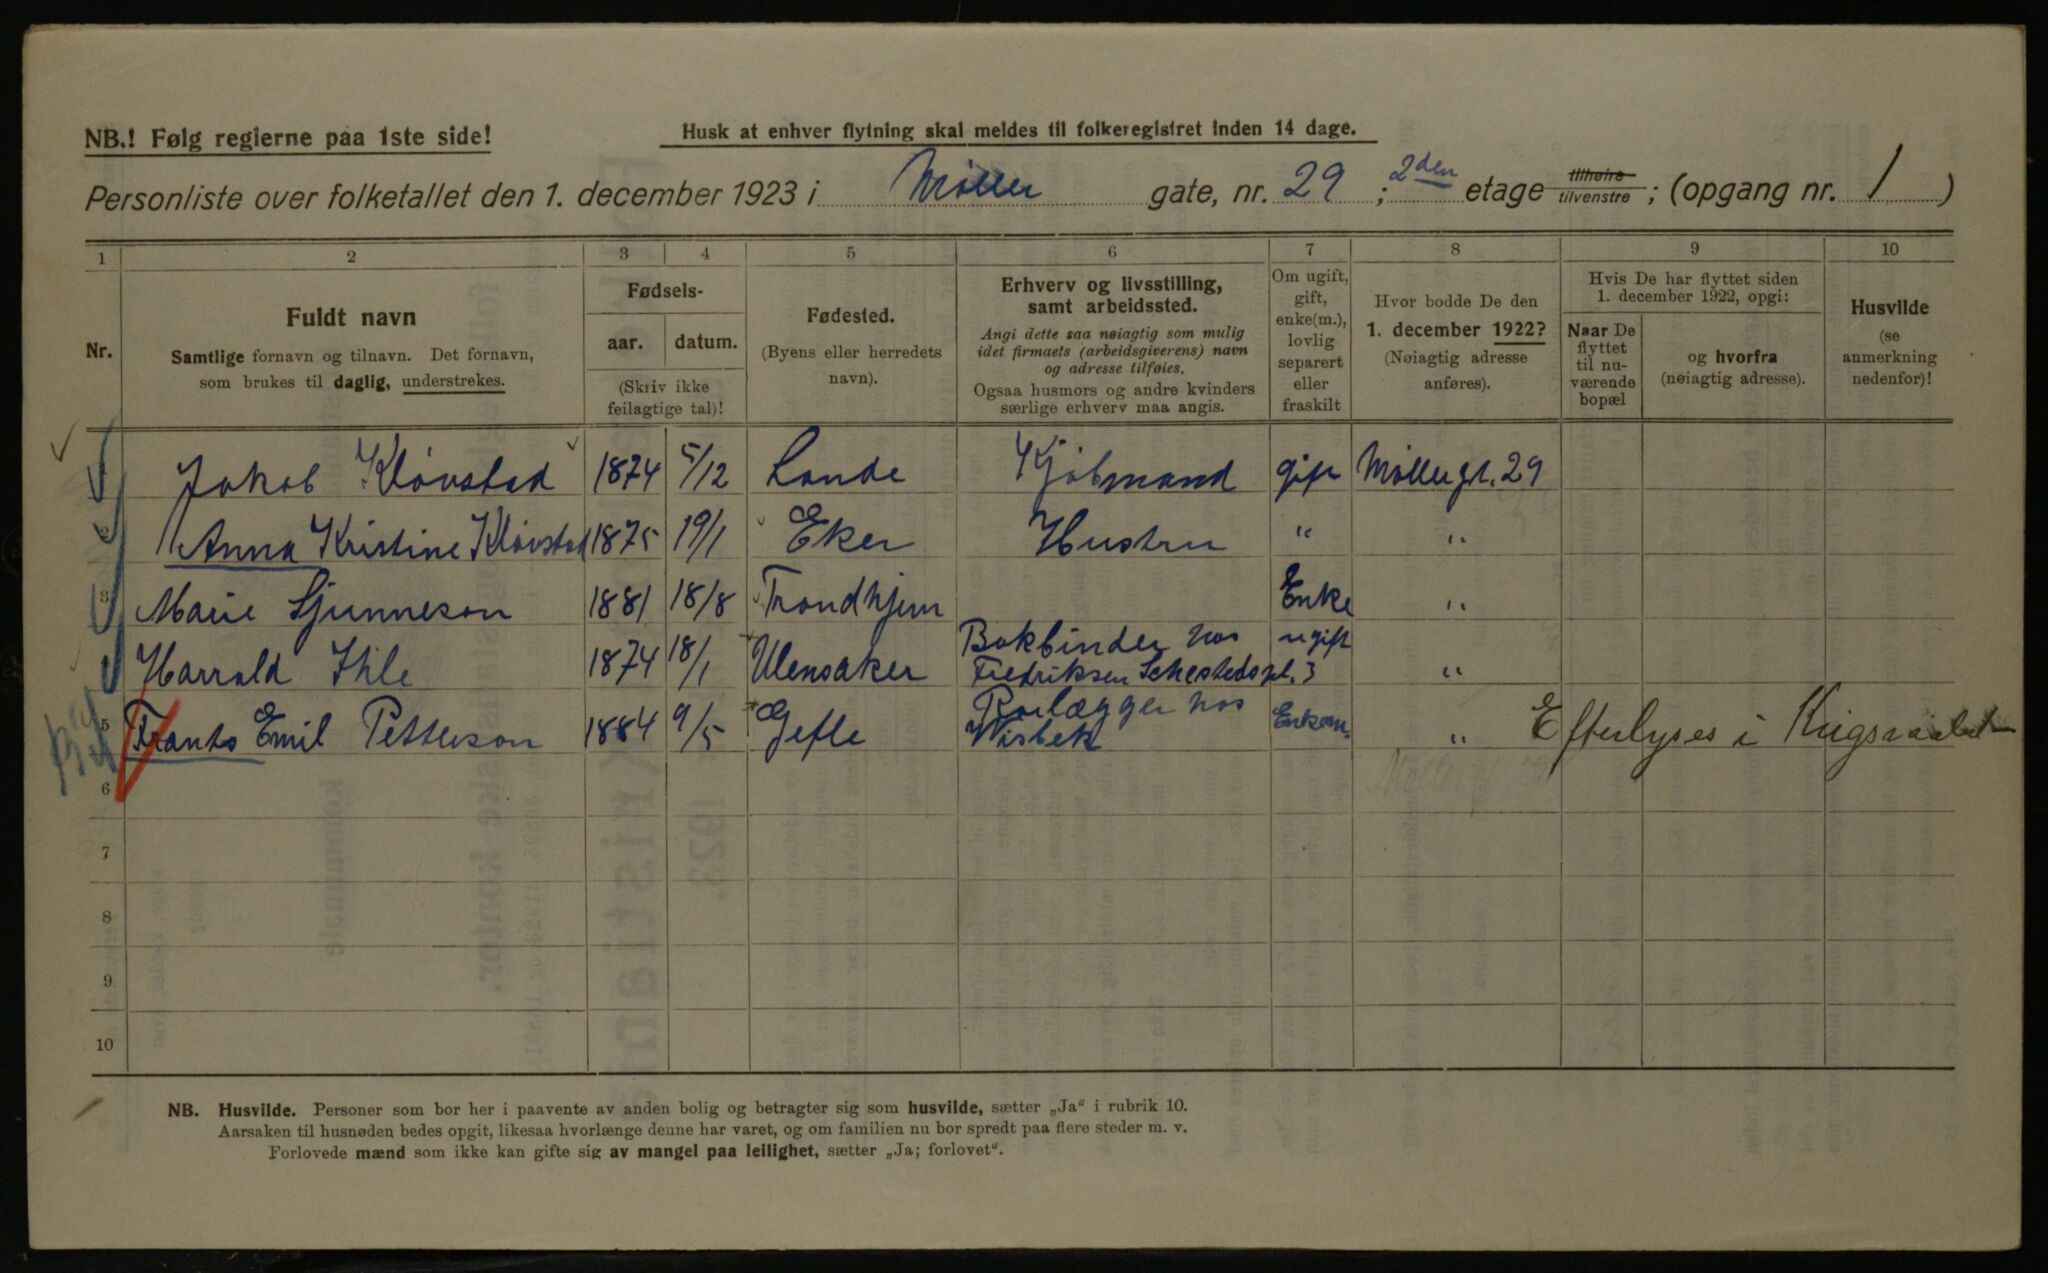 NB.! Følg reglerne paa 1ste side!
Husk at enhver flytning skal meldes til folkeregistret inden 14 dage.
Personliste over folketallet den 1. december 1923 i Møller gate, nr. 29 ; 2den etage tilhøire tilvenstre ; (opgang nr. 1 )
1 2 3 4 5 6 7 8 9 10
Nr.
Fuldt navn
Samtlige fornavn og tilnavn. Det fornavn,
som brukes til daglig, understrekes.
Fødsels-
aar. datum.
(Skriv ikke
feilagtige tal)!
Fødested.
(Byens eller herredets
navn).
Erhverv og livsstilling,
samt arbeidssted.
Angi dette saa nøiagtig som mulig
idet firmaets (arbeidsgiverens) navn
og adresse tilføies.
Ogsaa husmors og andre kvinders
særlige erhverv maa angis.
Om ugift,
gift,
enke(m.),
lovlig
separert
eller
fraskilt
Hvor bodde De den
1. december 1922?
(Nøiagtig adresse
anføres).
Hvis De har flyttet siden
1. december 1922, opgi:
Naar De
flyttet
til nu-
værende
bopæl
og hvorfra
(nøiagtig adresse).
Husvilde
(se
anmerkning
nedenfor)!
1 Jakob Kløvstad 1874 5/12 Lande Kjøbmand gift Møllergt. 29
2 Anna Kristine Kløvstad 1875 19/1 Eker Hustru " "
3 Marie Ljunneson 1881 18/8 Trondhjem Enke "
4 Harrald Ihle 1874 18/1 Ulensaker Bokbinder hos Fredriksen Sehestedspl. 3 ugift "
5 Frants Emil Petterson 1884 9/5 Gefle Rørlægger hos Wisbek Enkem. " Efterlyses i
6
7
8
9
10
NB. Husvilde. Personer som bor her i paavente av anden bolig og betragter sig som husvilde, sætter „Ja" i rubrik 10.
Aarsaken til husnøden bedes opgit, likesaa hvorlænge denne har varet, og om familien nu bor spredt paa flere steder m. v.
Forlovede mænd som ikke kan gifte sig av mangel paa leilighet, sætter „Ja; forlovet".